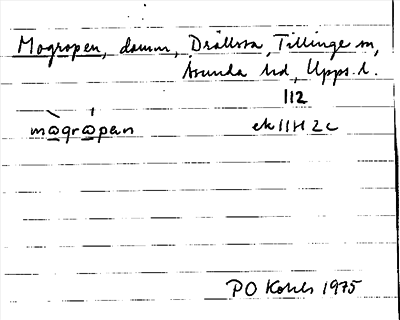 Mogropen, damm, Drällsta, Tillinge sn,
Åsunda hd, Upps. l.
112
mògrópan ek 11H 2c
PO Kohls 1975